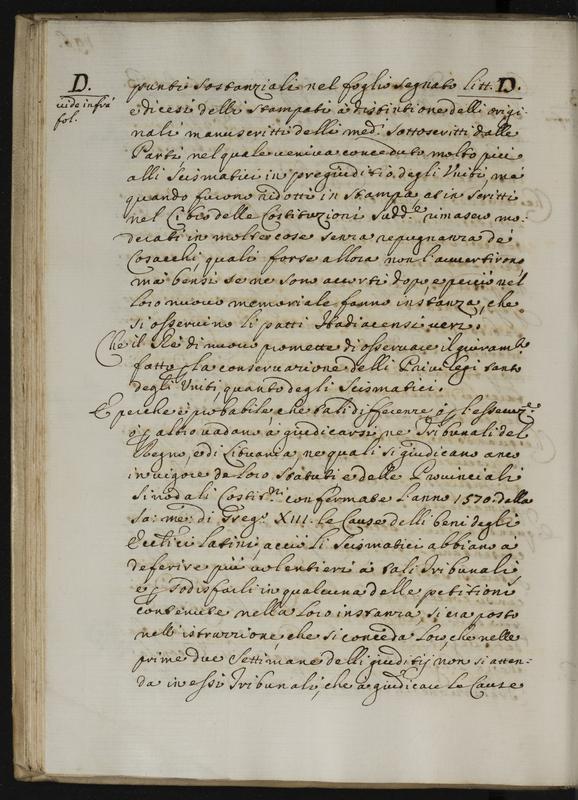 D.
vide infrà
fol.
punti sostanziali nel foglio segnato litt. D.
e dicesi delli stampati à distintione delli origi-
nali manuscritti delli med.i sottoscritti dalle
Parti, nel quale veniva conceduto molto più
alli Scismatici in pregiuditio degli Uniti, mà
quando furono ridotti in stampa, et inseriti
nel libro delle Costituzioni sudd.e rimasero mo-
derati in molte cose senza repugnanza de
Cosacchi, quali forse allora non l'avvertirono
mà bensì se ne sono accorti dopo, e perciò nel
loro nuovo memoriale fanno instanza, che
si osservino li patti Hadiacensi veri.
Che il Rè di nuovo promette di osservare il giuram.to
fatto p la conservazione delli Privilegi tanto
degli Uniti, quanto degli Scismatici.
E perche è probabile che tali differenze ò p l'essenz.e
ò p altro vadano à giudicarsi ne Tribunali del
Regno, e di Lituania, ne quali si giudicano anco
in vigore de loro Statuti e delle Provinciali
Sinodali Costit.ni confermate l'anno 1570. dalla
sa: me: di Greg.o XIII. le Cause delli beni degli
Ecc.lici Latini, acciò li Scismatici abbiano à
deferire più volentieri à tali Tribunali,
e p sodisfarli in qualcuna delle petitioni
contenute nella loro instanza, si era posto
nell'istruzzione, che si conceda loro, che nelle
prime due settimane delli giuditij non si atten-
da in essi Tribunali, che à giudicare le Cause